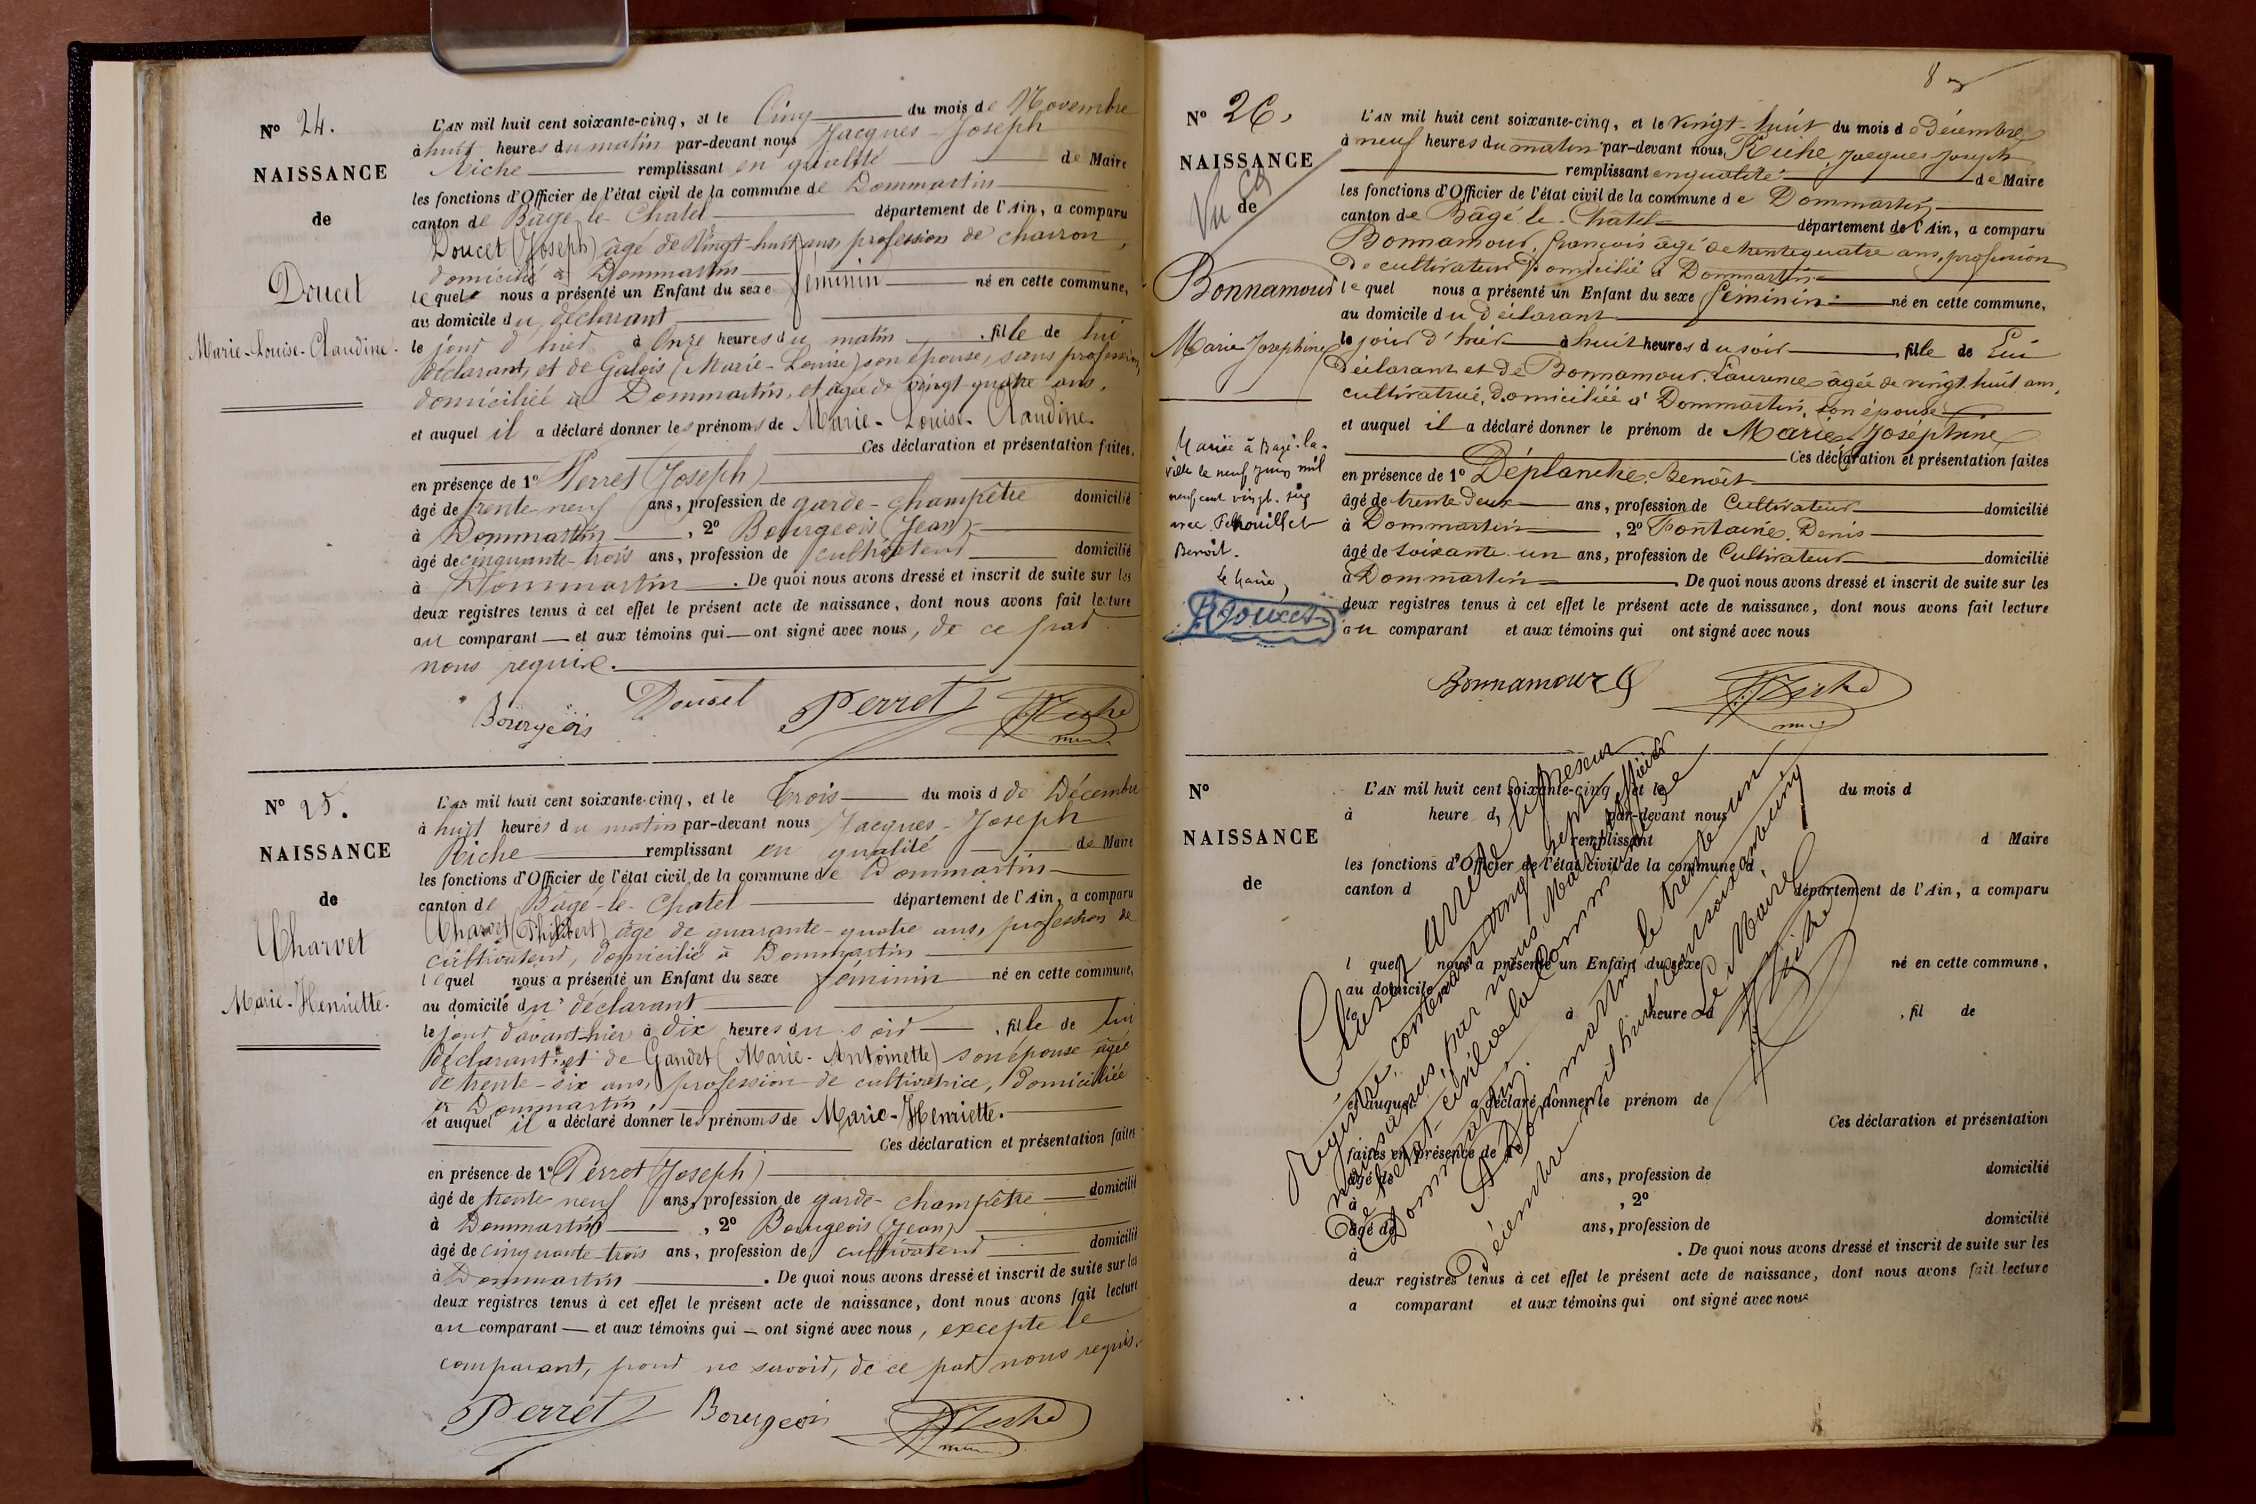 N° 24.
NAISSANCE
de
Doucet
Marie-Louise-Claudine.
L'AN mil huit cent soixante-cinq, et le Cinq du mois de Novembre
à huit heures du matin par-devant nous Jacques-Joseph
Riche remplissant en qualité de Maire
les fonctions d'Officier de l'état civil de la commune de Dommartin
canton de Bâgé-le-Chatel département de l'Ain, a comparu
Doucet (Joseph) âgé de vingt-huit ans, profession de charron,
domicilié à Dommartin
lequel nous a présenté un Enfant du sexe féminin né en cette commune,
au domicile du déclarant
le jour d'hier à Onze heures du matin, fille de lui
déclarant, et de Galois (Marie-Louise) son épouse, sans profession
domiciliée à Dommartin, et âgée de vingt quatre ans,
et auquel il a déclaré donner les prénoms de Marie-Louise-Claudine.
Ces déclaration et présentation faites,
en présence de 1° Perret (Joseph)
âgé de trente neuf ans, profession de garde-champêtre domicilié
à Dommartin, 2° Bourgeois (Jean)
âgé de cinquante-trois ans, profession de cultivateur domicilié
à Dommartin. De quoi nous avons dressé et inscrit de suite sur les
deux registres tenus à cet effet le présent acte de naissance, dont nous avons fait lecture
au comparant et aux témoins qui ont signé avec nous, de ce
nous requis.
Bourgeois Doucet Perret J. Riche
N° 25.
NAISSANCE
de
Charvet
Marie-Henriette.
L'AN mil huit cent soixante-cinq, et le Trois du mois d de Décembre
à huit heures du matin par-devant nous Jacques-Joseph
Riche remplissant en qualité de Maire
les fonctions d'Officier de l'état civil de la commune de Dommartin
canton de Bâgé-le-Chatel département de l'Ain, a comparu
Charvet (Philibert) âgé de quarante-quatre ans, profession de
cultivateur, domicilié à Dommartin
lequel nous a présenté un Enfant du sexe féminin né en cette commune,
au domicile du déclarant
le jour d'avant-hier à dix heures du soir, fille de lui
déclarant et de Gandet (Marie-Antoinette) son épouse âgée
de trente-six ans, profession de cultivatrice, domiciliée
à Dommartin,
et auquel il a déclaré donner les prénoms de Marie-Henriette.
Ces déclaration et présentation faites
en présence de 1° Perret (Joseph)
âgé de trente neuf ans, profession de garde-champêtre domicilié
à Dommartin, 2° Bourgeois (Jean)
âgé de cinquante-trois ans, profession de cultivateur domicilié
à Dommartin. De quoi nous avons dressé et inscrit de suite sur les
deux registres tenus à cet effet le présent acte de naissance, dont nous avons fait lecture
au comparant et aux témoins qui ont signé avec nous, excepté le
comparant, pour ne savoir, de ce par nous requis.
Perret Bourgeois J. Riche
N° 26.
NAISSANCE
de
Vu
Bonnamour
Marie Joséphine
Mariée à Bagé-la-
Ville le neuf Juin mil
neuf cent vingt-six
avec
Benoit.
Le Maire,
Doucet
L'AN mil huit cent soixante-cinq, et le vingt-huit du mois de Décembre
à neuf heures du matin par-devant nous, Riche Jacques Joseph
remplissant en qualité de Maire
les fonctions d'Officier de l'état civil de la commune de Dommartin
canton de Bâgé le Châtel département de l'Ain, a comparu
Bonnamour, françois âgé de trente quatre ans, profession
De cultivateur domicilié à Dommartin
lequel nous a présenté un Enfant du sexe féminin né en cette commune,
au domicile du déclarant
le jour d'hier à huit heures du soir, fille de Lui
Déclarant et de Bonnamour Laurence âgée de vingt huit ans,
cultivatrice, domiciliée à Dommartin, son épouse
et auquel il a déclaré donner le prénom de Marie Joséphine
Ces déclaration et présentation faites
en présence de 1° Déplanche Benoit
âgé de trente deux ans, profession de Cultivateur domicilié
à Dommartin, 2° Fontaine Denis
âgé de soixante-un ans, profession de Cultivateur domicilié
à Dommartin. De quoi nous avons dressé et inscrit de suite sur les
deux registres tenus à cet effet le présent acte de naissance, dont nous avons fait lecture
au comparant et aux témoins qui ont signé avec nous
Bonnamour J. Riche
N°
NAISSANCE
de
L'AN mil huit cent soixante-cinq et le du mois d
à heure d par-devant nous
remplissant d Maire
les fonctions d'Officier de l'état civil de la commune d
canton d département de l'Ain, a comparu
l quel nous a présenté un Enfant du sexe né en cette commune,
au domicile
le à heure d, fil de
et auquel a déclaré donner le prénom de
Ces déclaration et présentation
faites en présence de 1°
âgé de ans, profession de domicilié
à, 2°
âgé de ans, profession de domicilié
à. De quoi nous avons dressé et inscrit de suite sur les
deux registres tenus à cet effet le présent acte de naissance, dont nous avons fait lecture
a comparant et aux témoins qui ont signé avec nous
Clos et arrêté le présent
Registre, contenant vingt-sept
naissances, par nous, Maire officier
de l'état-civil de la commune de
Dommartin.
A Dommartin le trente un
Décembre mil huit cent soixante cinq
Le Maire
J. Riche